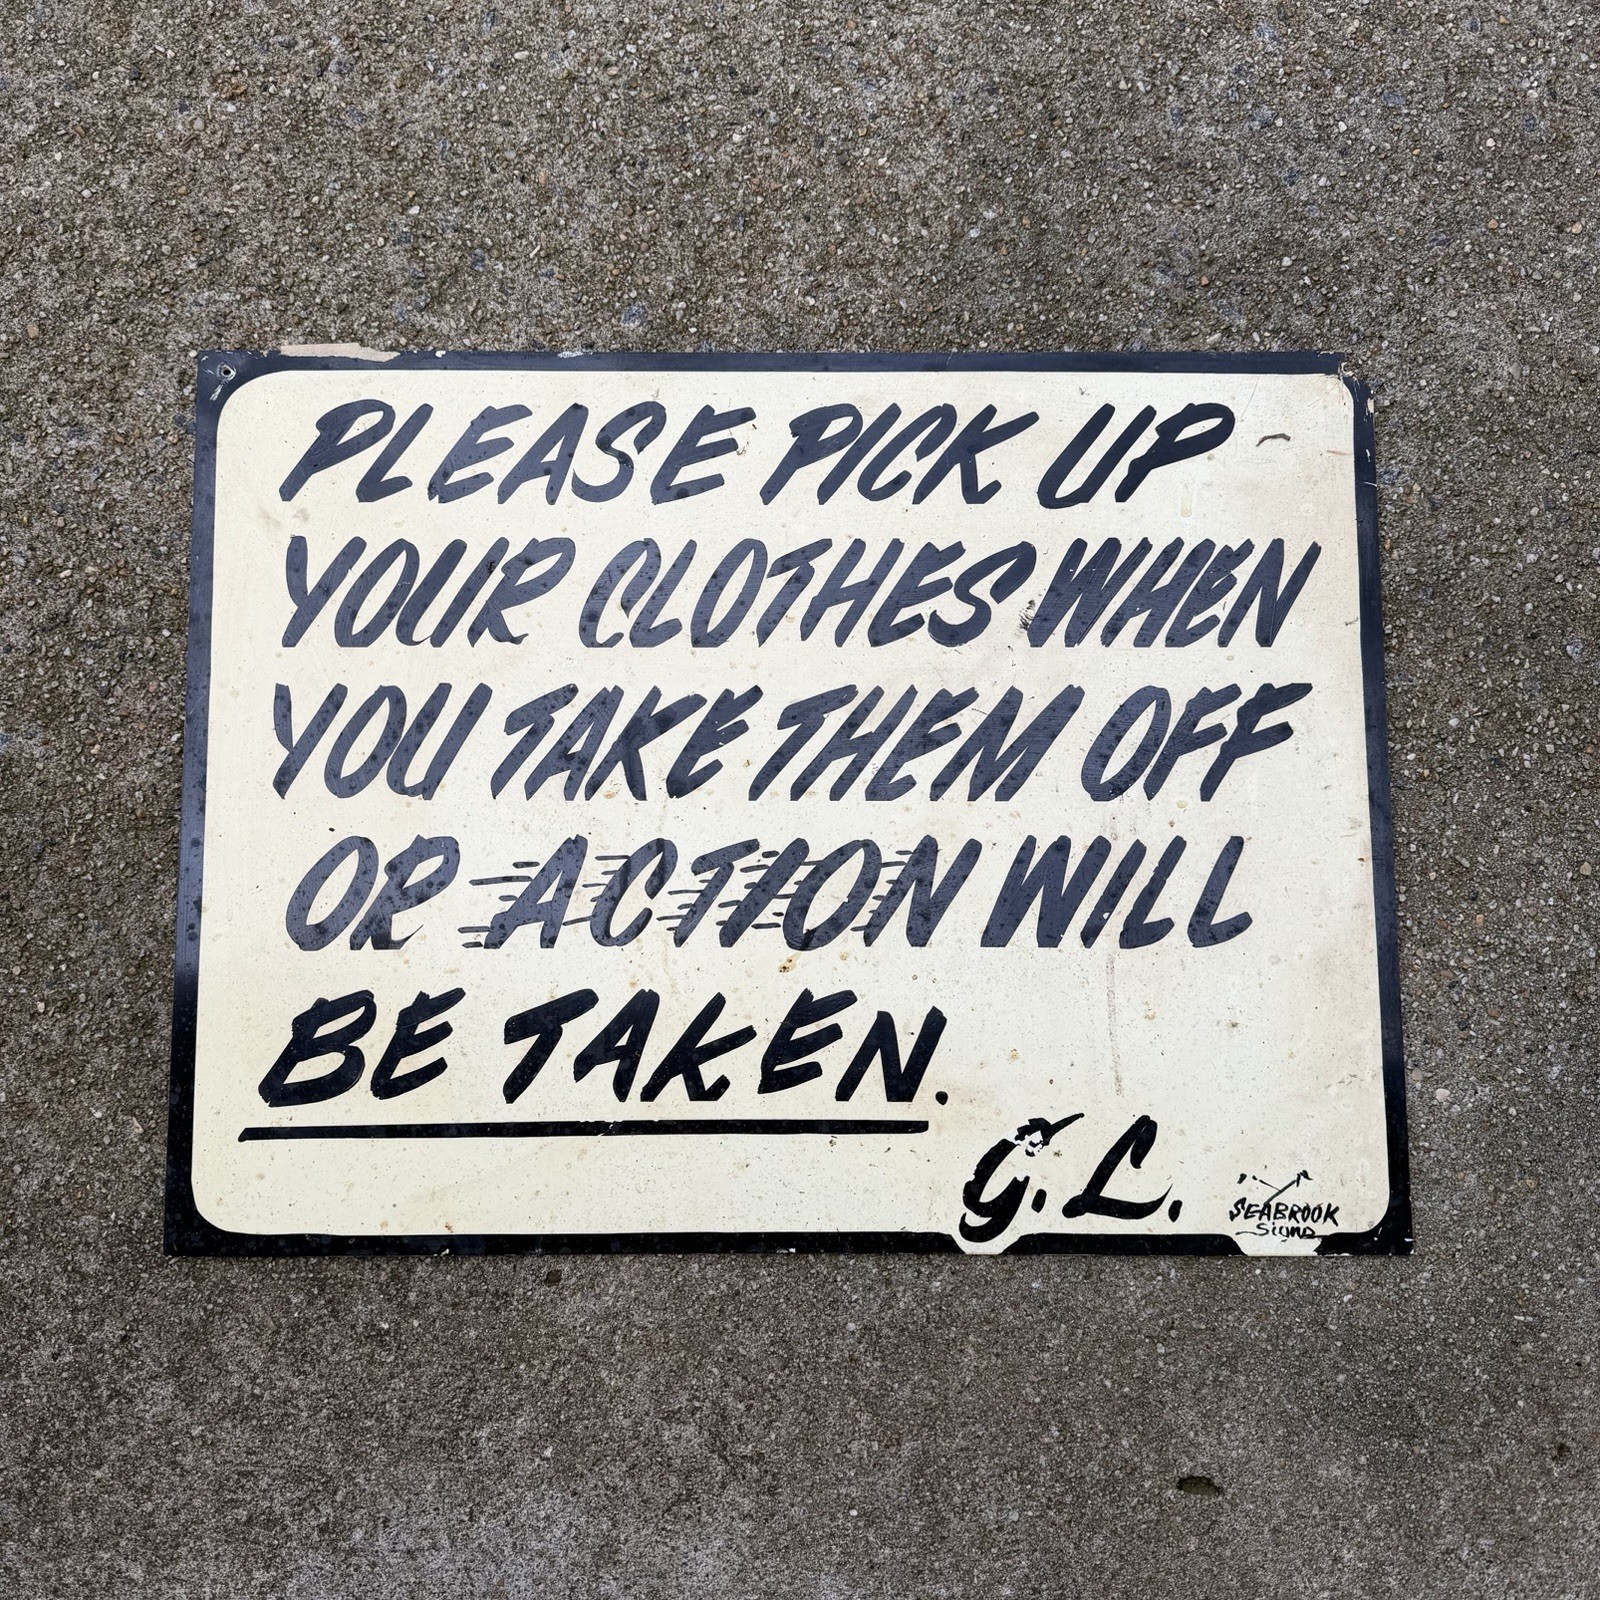 PLEASE PICK UP
YOUR CLOTHES WHEN
YOU TAKE THEM OFF
OR ACTION WILL
BE TAKEN.
G. L.
SEABROOK
SIGNS